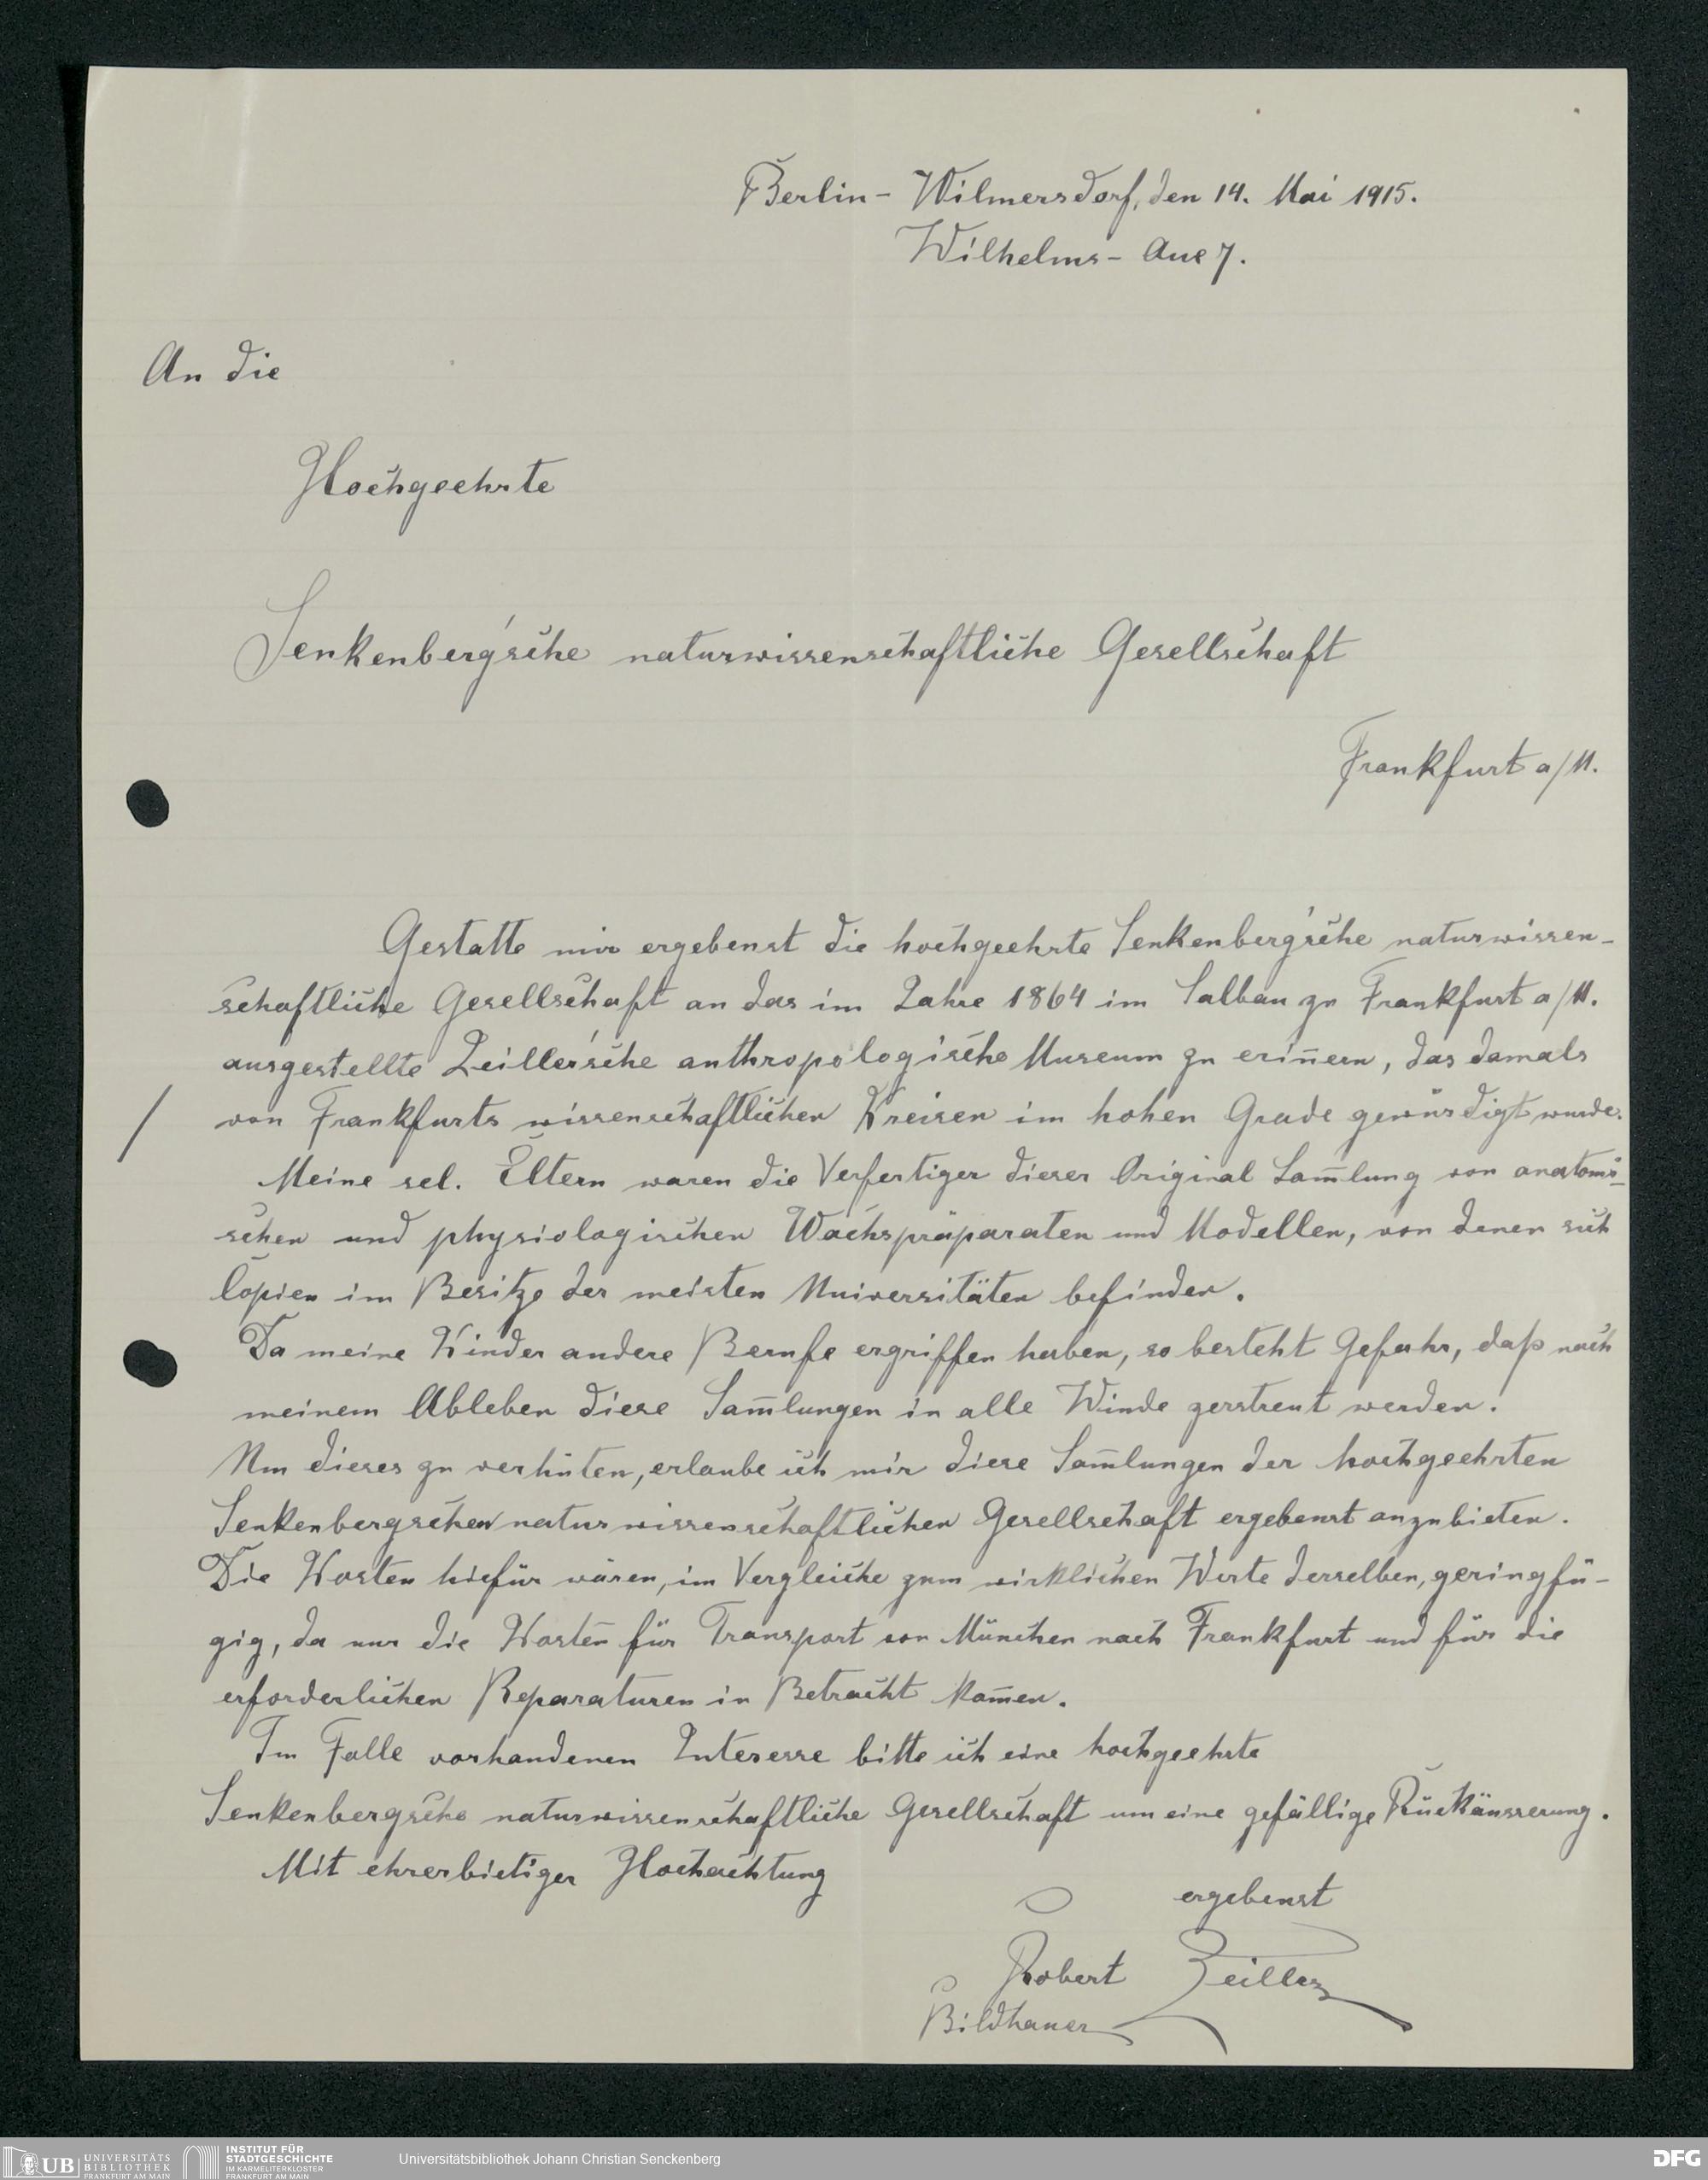 Berlin - Wilmersdorf, den 14. Mai 1915.
Wilhelms - Aue 7.
An die
Hochgeehrte
Senkenberg'sche naturwissenschaftliche Gesellschaft
Frankfurt a/M.
Gestatte mir ergebenst die hochgeehrte Senkenberg'sche naturwissen-
schaftliche Gesellschaft an das im Jahre 1864 im Salbau zu Frankfurt a/M.
ausgestellte Zeiller'sche anthropologische Museum zu erin̄ern, das damals
von Frankfurts wissenschaftlichen Kreisen im hohen Grade gewürdigt wurde.
Meine sel. Eltern waren die Verfertiger dieser Original Sam̄lung von anatomi-
schen und physiologischen Wachspräparaten und Modellen, von denen sich
Copien im Besitze der meisten Universitäten befinden.
Da meine Kinder andere Berufe ergriffen haben, so besteht Gefahr, daß nach
meinem Ableben diese Sam̄lungen in alle Winde zerstreut werden.
Um dieses zu verhüten, erlaube ich mir diese Sam̄lungen der hochgeehrten
Senkenbergschen naturwissenschaftlichen Gesellschaft ergebenst anzubieten.
Die Kosten hiefür wären, im Vergleiche zum wirklichen Werte derselben, geringfü-
gig, da nur die Kosten für Transport von München nach Frankfurt und für die
erforderlichen Reparaturen in Betracht kom̄en.
Im Falle vorhandenen Interesse bitte ich eine hochgeehrte
Senkenbergsche naturwissenschaftliche Gesellschaft um eine gefällige Rückäusserung.
Mit ehrerbietiger Hochachtung
ergebenst
Robert Zeiller
Bildhauer
UB UNIVERSITÄTS
BIBLIOTHEK
FRANKFURT AM MAIN
INSTITUT FÜR
STADTGESCHICHTE
IM KARMELITERKLOSTER
FRANKFURT AM MAIN
Universitätsbibliothek Johann Christian Senckenberg
DFG